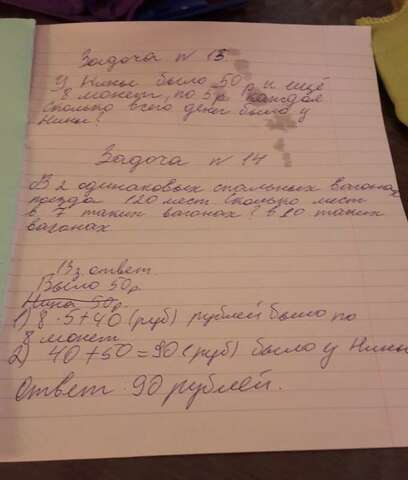 Задача № 13
У Нины было 50 р и ещё
8 монет, по 5р каждая
Сколько всего денег было у
Нины?
Задача № 14
В 2 одинаковых спальных вагонах
поезда 120 мест. Сколько мест
в 7 таких вагонах? в 10 таких
вагонах
13 ответ.
Было 50р
Нина 50р.
1) 8 · 5 + 40 (руб) рублей было по
8 монет
2) 40 + 50 = 90 (руб) было у Нины
Ответ 90 рублей.